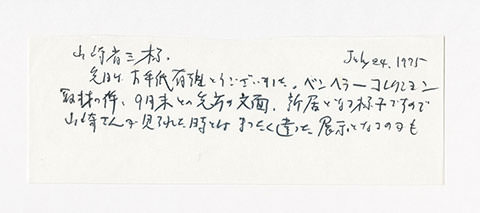 山崎省三様. July 24. 1975
先日は、お手紙有難とうございました。ベンヘラーコレクション
取材の件、9月末との先方の文面、新居となる様子ですので
山崎さんが見られた時とは まったく違った展示となるのも